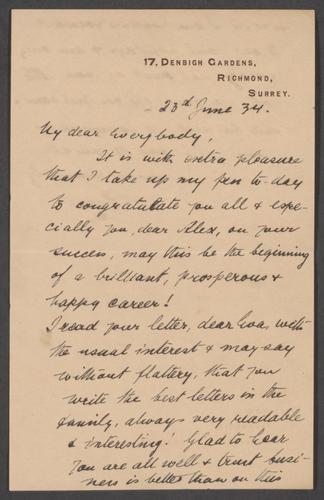 17, DENBIGH GARDENS,
RICHMOND,
SURREY.
23d June 34.
My dear Everybody,
It is with extra pleasure
that I take up my pen to-day
to congratulate you all & espe-
cially you, dear Alex, on your
success, may this be the beginning
of a brilliant, prosperous &
happy career!
I read your letter, dear with
the usual interest & may say
without flattery, that you
write the best letters in the
family, always very readable
& interesting! Glad to hear
you are all well & trust busi-
ness is better than on this